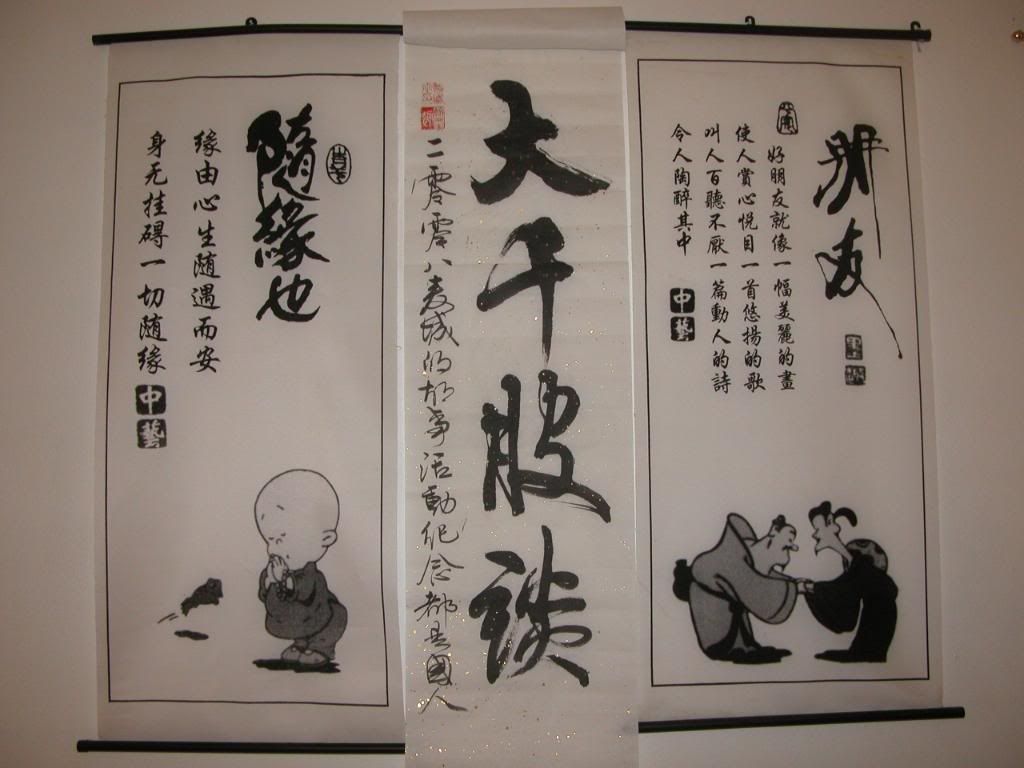 朋友
好朋友就像一幅美麗的畫
使人賞心悦目一首悠揚的歌
叫人百聽不厭一篇動人的詩
令人陶醉其中
中藝
大千股談
二零零八麦城的活動纪念都是國人
隨緣也
缘由心生随遇而安
身无挂碍一切随缘
中藝